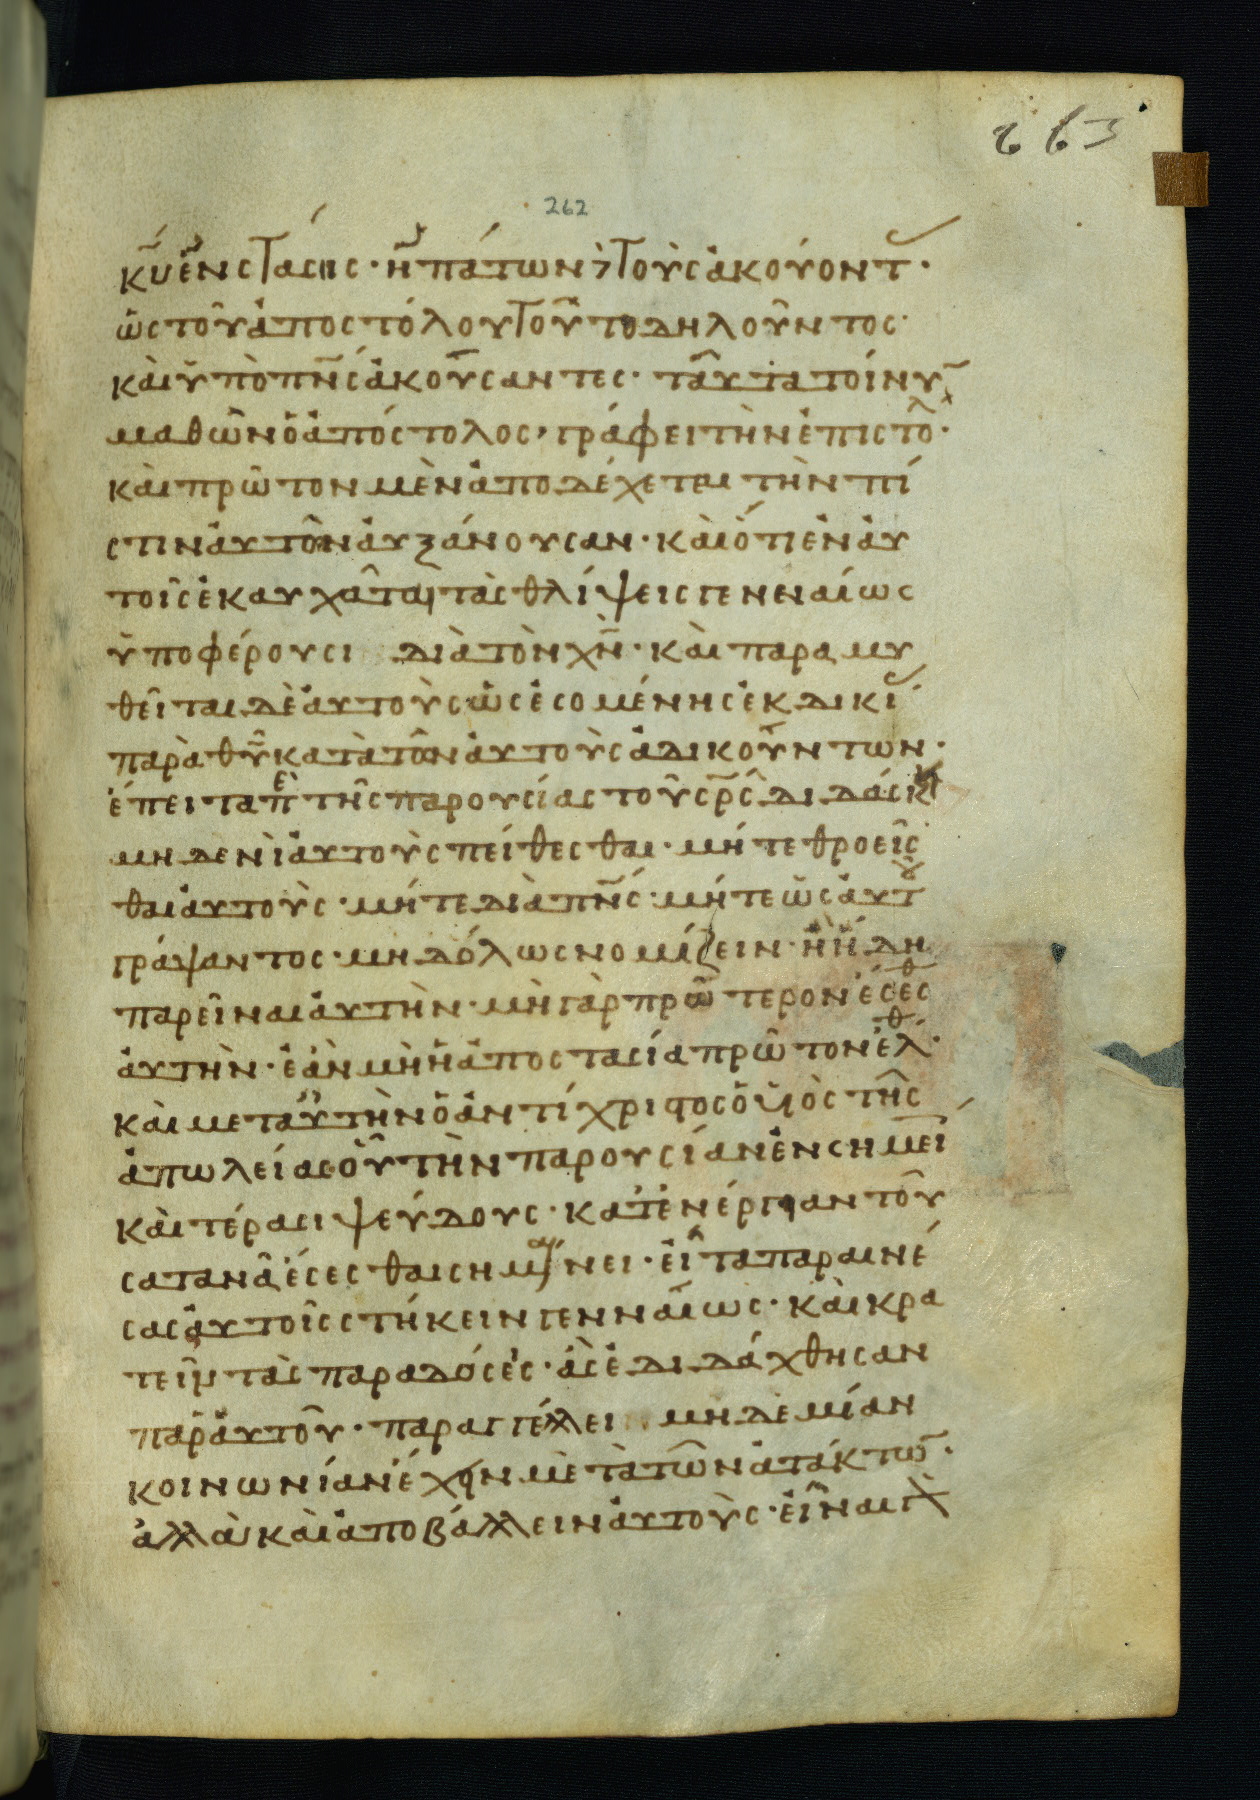 663
262
κυ ἐνστάσης· ἠπάτων τοὺς ἀκούοντ·
ὡς τοῦ ἀποστόλου τοῦτο δηλοῦντος·
καὶ ὑπὸ πνς ἀκούσαντες· ταῦτα τοίνυ
μαθὼν ὁ ἀπόστολος, γράφει τὴν ἐπιστολ·
καὶ πρῶτον μὲν ἀποδέχεται τὴν πί
στιν αὐτῶν αὐξάνουσαν· καὶ ὅτι ἐν αὐ
τοῖς ἐκαυχᾶτο τὰς θλίψεις γενναίως
ὑποφέρουσι διὰ τὸν χν· καὶ παραμυ
θεῖται δὲ αὐτοὺς ὡς ἐσομένης ἐκδικί
παρὰ θυ κατὰ τῶν αὐτοὺς ἀδικούντων·
ἔπειτα πε τῆς παρουσίας τοῦ σρς διδάσκ
μηδενὶ αὐτοὺς πείθεσθαι· μήτε θροεῖς
θαι αὐτοὺς· μήτε διὰ πνς· μήτε ὡς αὐτου
γράψαντος· μηδ ὅλως νομίζειν· ἢ ἤδη
παρεῖναι αὐτὴν· μὴ γὰρ πρότερον ἔσεσθ
αὐτὴν· ἐὰν μὴ ἡ ἀποστασία πρῶτον ἔλθ·
καὶ μετ αὐτὴν ὁ ἀντίχριστος ὁ υἱὸς τῆς
ἀπωλείας οὗ τὴν παρουσίαν ἐν σημεί
καὶ τέρασι ψεύδους· κατ ἐνέργειαν τοῦ
σατανᾶ ἔσεσθαι σημαίνει· εἶτα παραινέ
σας αὐτοῖς στήκειν γενναίως· καὶ κρα
τεῖν τὰς παραδόσεις· ἃς ἐδιδάχθησαν
παρ αὐτοῦ· παραγγέλλει μηδεμίαν
κοινωνίαν ἔχειν μετὰ τῶν ἀτάκτω·
ἀλλὰ καὶ ἀποβάλλειν αὐτοὺς· εἶναι γὰ